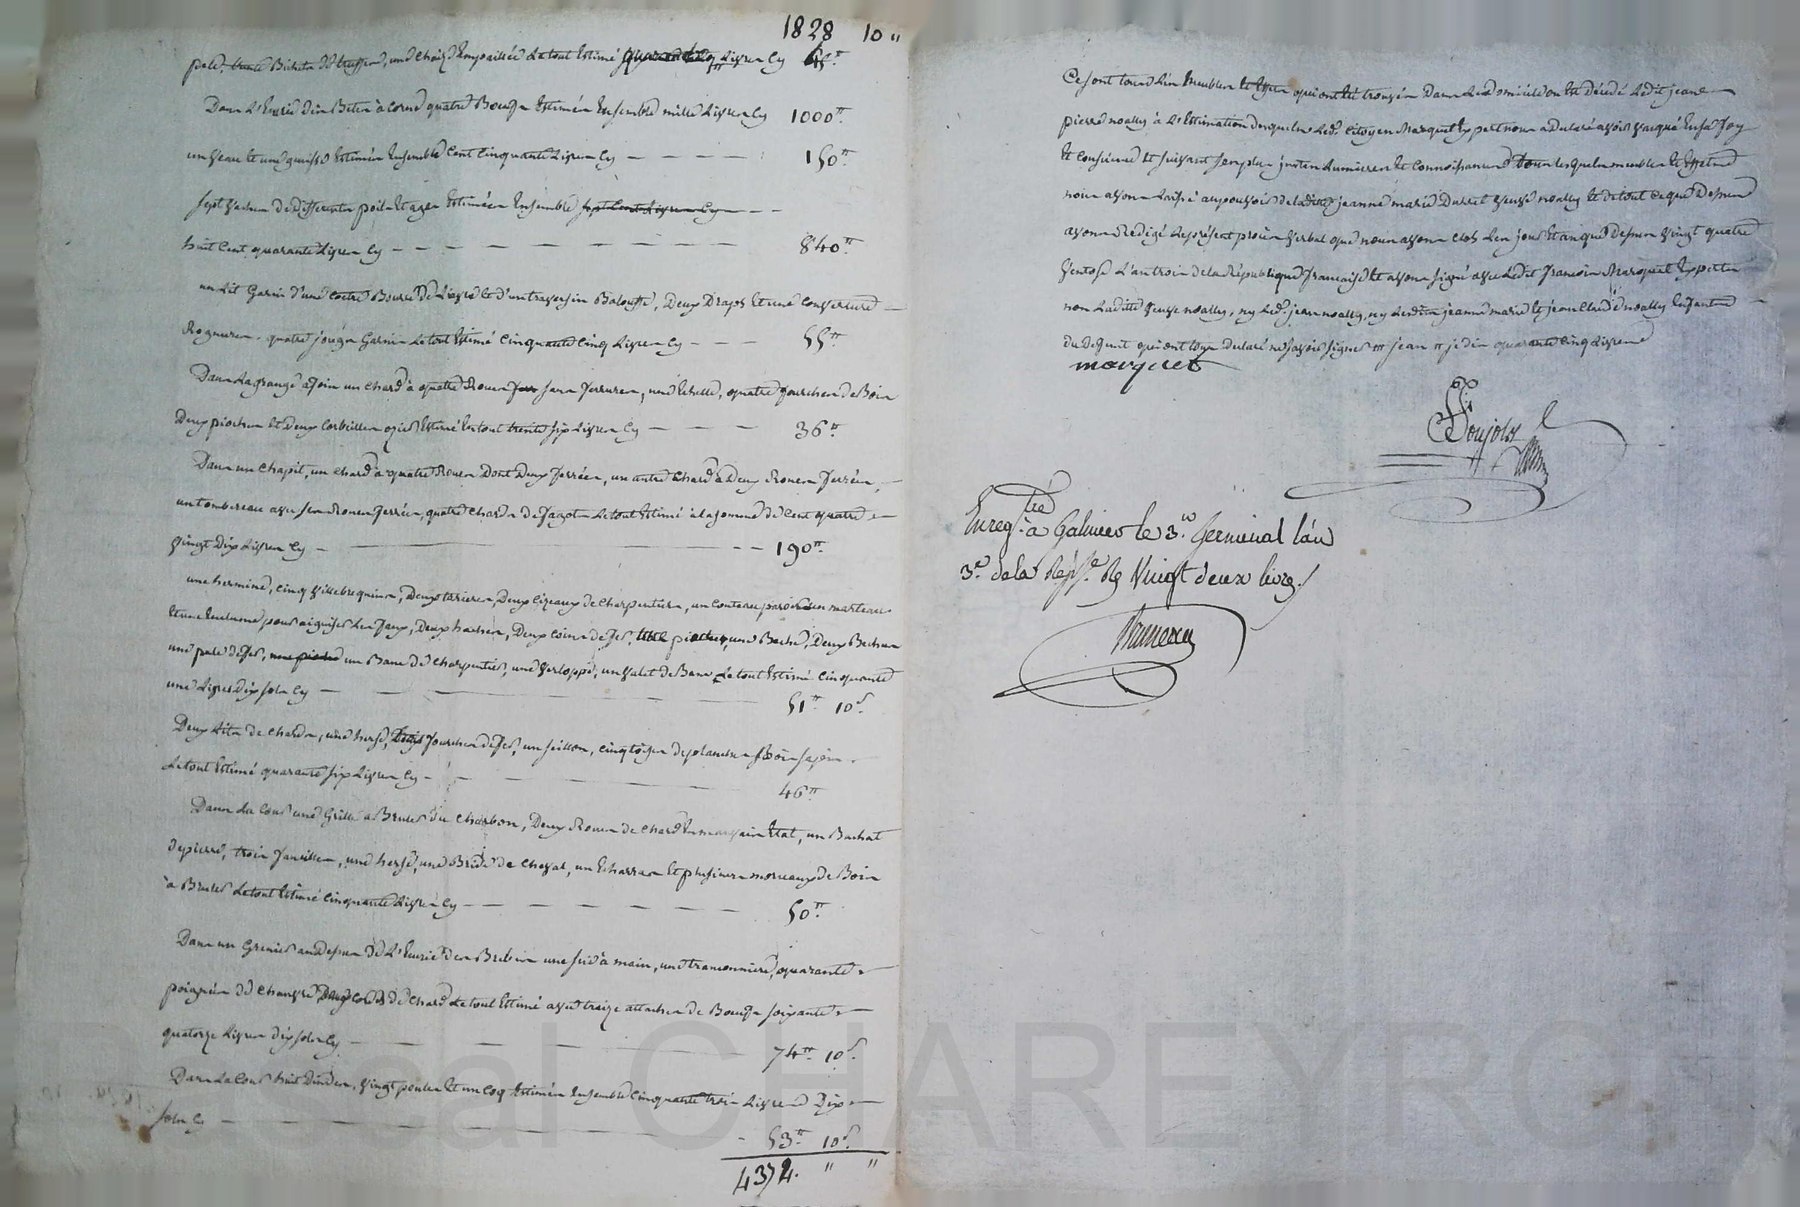 1828 10 "
pele, trente Bichets de truffes, une chaize Empaillée Le tout Estimé Livres Cy 45ᵗᵗ
Dans L'Ecurie des Betes à Corne quatre Boeufs Estimés Ensemble mille Livres Cy 1000ᵗᵗ
un veau et une genisse Estimés Ensemble Cent Cinquante Livres Cy — — — — 150ᵗᵗ
sept vaches de differents poils et ages Estimées Ensemble sept Cent Livres Cy — —
huit Cent quarante Livres Cy — — — — — 840ᵗᵗ
un Lit Garni d'une Coetre Bourré de et d'un traversin Balouffe, Deux Draps et une Couverture —
quatre jougs Garnis Le tout Estimé Cinquante Cinq Livres Cy — — — 55ᵗᵗ
Dans La grange a foin un Chard à quatre Roues sans ferrures, une Echelle, quatre fourches de Bois
Deux pioches et Deux Corbeilles Estimé Le tout trente six Livres Cy — — — 36ᵗᵗ
Dans un Chapit, un Chard à quatre Roues Dont Deux ferrées, un autre Chard à Deux Roues ferrées,
un tombereau avec ses Roues ferrées, quatre Chards de fagots Le tout Estimé à la somme de Cent quatre
vingt Dix Livres Cy — — — 190ᵗᵗ
une hermine, Cinq villebrequins, Deux tarieres, Deux Cizeaux de Charpentier, un Couteau paroir un marteau
et une Enclume pour aiguiser Les faux, Deux haches, Deux Coins de fer, pioches, une Bache, Deux Beches
une pele de fer, un Banc de Charpentier, une verloppe, un valet de Banc Le tout Estimé Cinquante
une Livres Dix sols Cy — — — — 51ᵗᵗ 10ˢ
Deux Lits de Chards, une herse, fourches de fer, un seillon, Cinq toises de planches Bois sapin
Le tout Estimé quarante six Livres Cy — — — 46ᵗᵗ
Dans La Cour une Grille a Bruler du Charbon, Deux Roues de Chard En mauvais Etat, un Bachat
de pierre, trois faucilles, une herse, une Bride de Cheval, un Echarras et plusieurs morceaux de Bois
à Bruler Le tout Estimé Cinquante Livres Cy — — — — 50ᵗᵗ
Dans un Grenier au dessus de L'Ecurie des Brebis une scie à main, une tramonniere, quarante
poignées de Chanvre Deux Cordes de Chard Le tout Estimé avec treize attaches de Boeufs soixante
quatorze Livres dix sols Cy — — — 74ᵗᵗ 10ˢ
Dans La Cour huit Dindes, vingt poules et un Coq Estimés Ensemble Cinquante trois Livres Dix
sols Cy — — — — 53ᵗᵗ 10ˢ
4374. " "
Ce sont tous Les meubles et Effets qui ont été trouvés Dans Le Domicile ou Est Décédé Ledit jean
pierre noally à L'Estimation Desquels Led. Citoyen Marquet Expert nous a Declaré avoir vaqué En sa foy
et Conscience et suivant ses plus justes Lumieres et Connoissances tous lesquels meubles et Effets
nous avons Laissé au pouvoir de Ladite jeanne marie Durret veuve noally et de tout Ce que Dessus
avons Redigé Le present procès verbal que nous avons Clos Les jour et an que Dessus vingt quatre
ventose L'an trois de La République francaise et avons signé avec Ledit francois Marquet Expert
non Ladite veuve noally, ny Led. jean noally, ny Lesdits jeanne marie et jean Claude noally Enfants
du Defunt qui ont tous Declaré ne savoir signer jean je dis quarante Cinq Livres
marquet
Poujols
Enregᵗʳᵉ à Galmier le 3. Germinal l'an
3.ᵉ de la Rép.ᵉ Rç Vingt deux livres
Pascal CHAREYRON